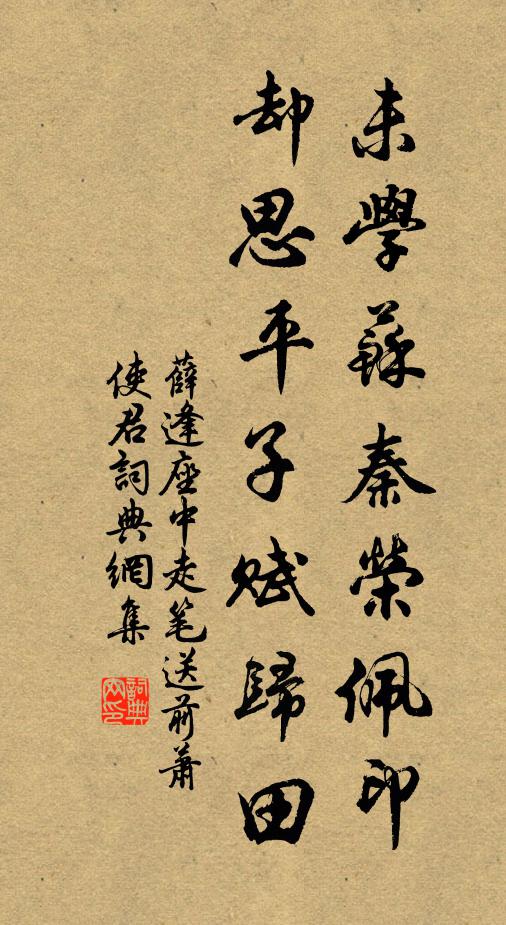 未學蘇秦榮佩印
却思平子賦歸田
薛逢座中走笔送前蕭
使君詞典網集
詞典网印